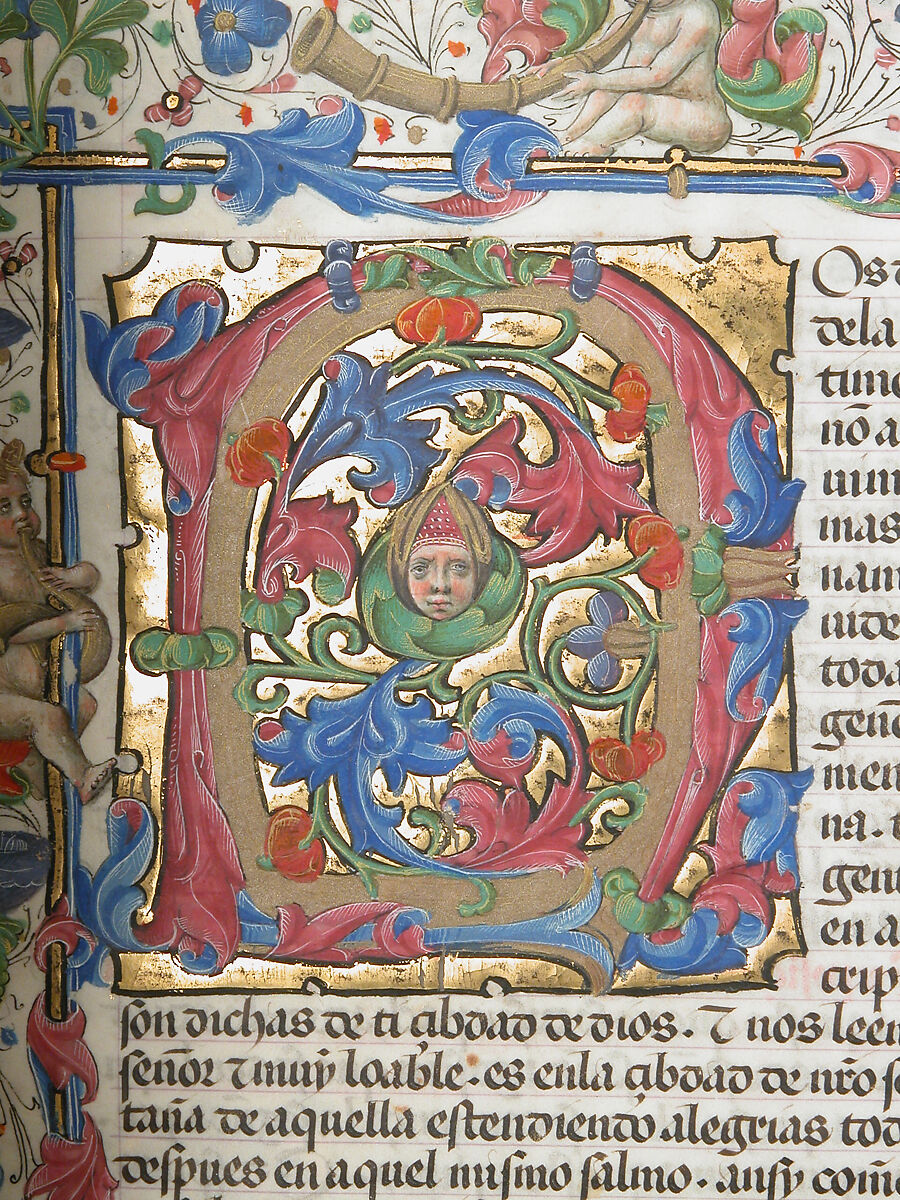 Os
dela
nō a
mas
nam
uide
toda
genē
men
na. t
gent
en a
crip
son dichas de ti çibdad de dios. ⁊ nos leen
señor ⁊ muy loable. es enla çibdad de nr̄o
tan̄a de aquella estendiendo alegrias tod
despues en aquel mismo salmo. ansy com̄